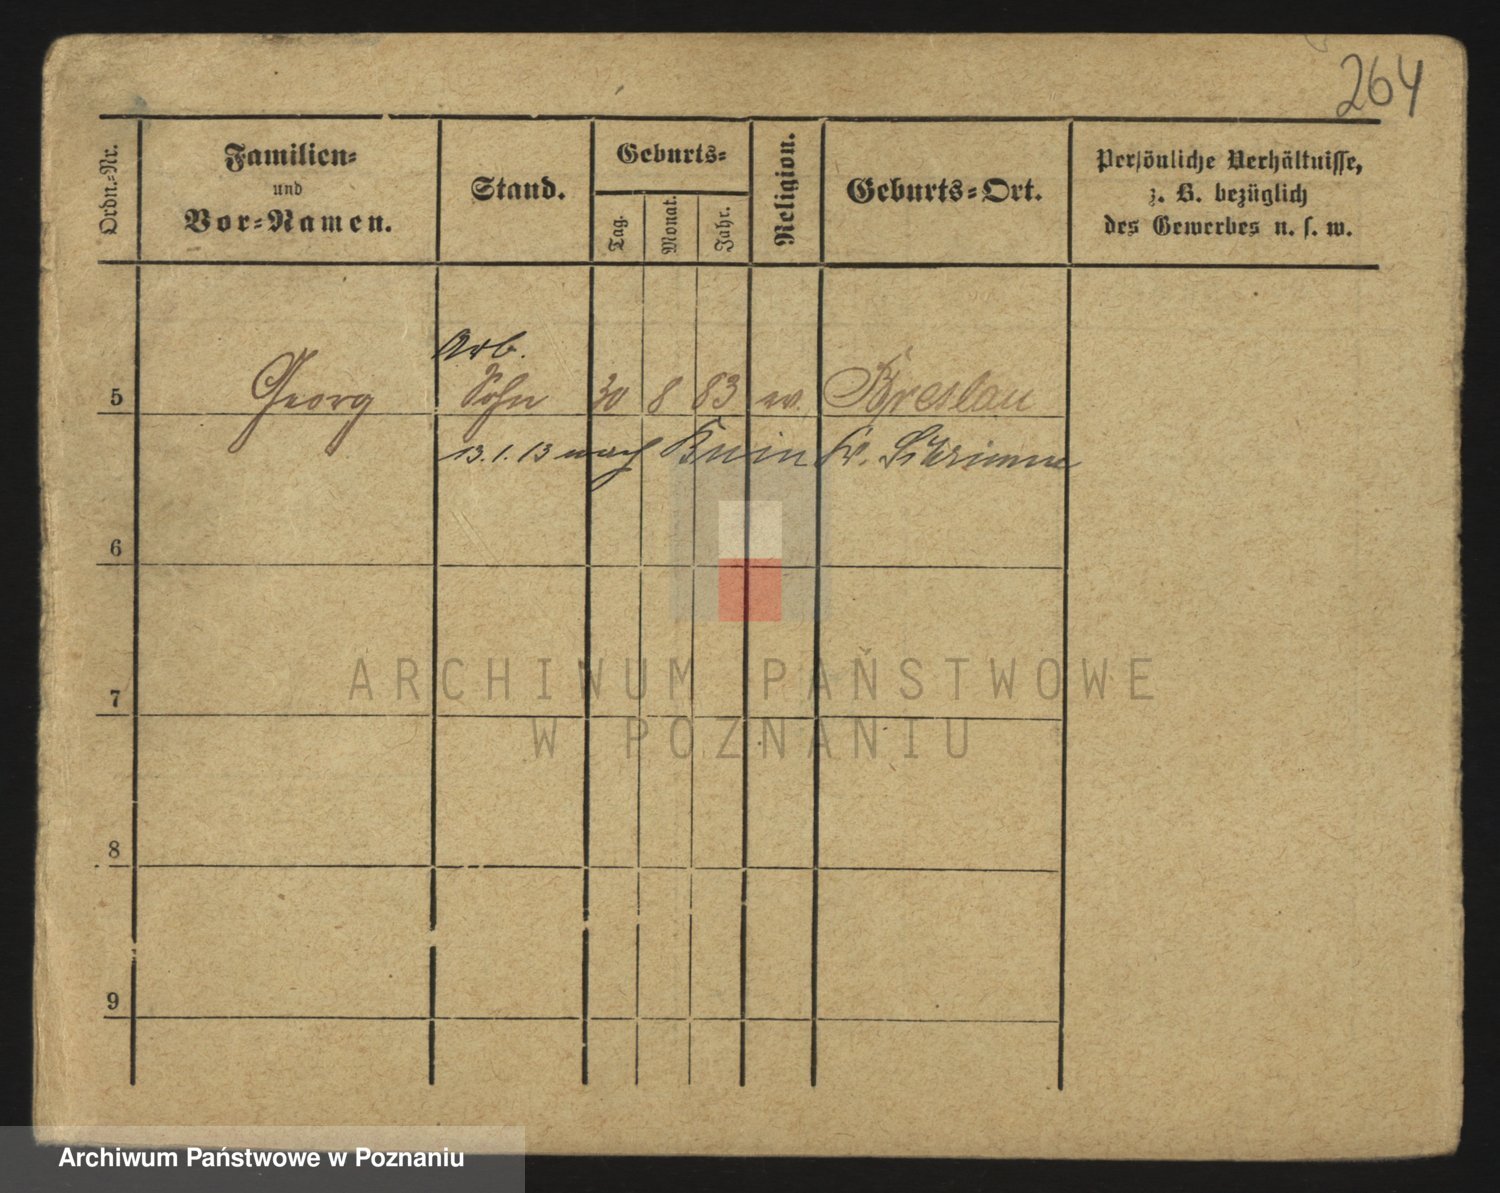 264
Ordn.-Nr.
Familien-
und
Vor-Namen.
Stand.
Geburts-
Tag.
Monat.
Jahr.
Religion.
Geburts-Ort.
Persönliche Verhältnisse,
z. B. bezüglich
des Gewerbes u. s. w.
Arb.
5 Georg Sohn 30 8 83 ev. Breslau
13.1.13 nach Kr. Schrimm
6
7
8
9
ARCHIWUM PAŃSTWOWE
W POZNANIU
Archiwum Państwowe w Poznaniu